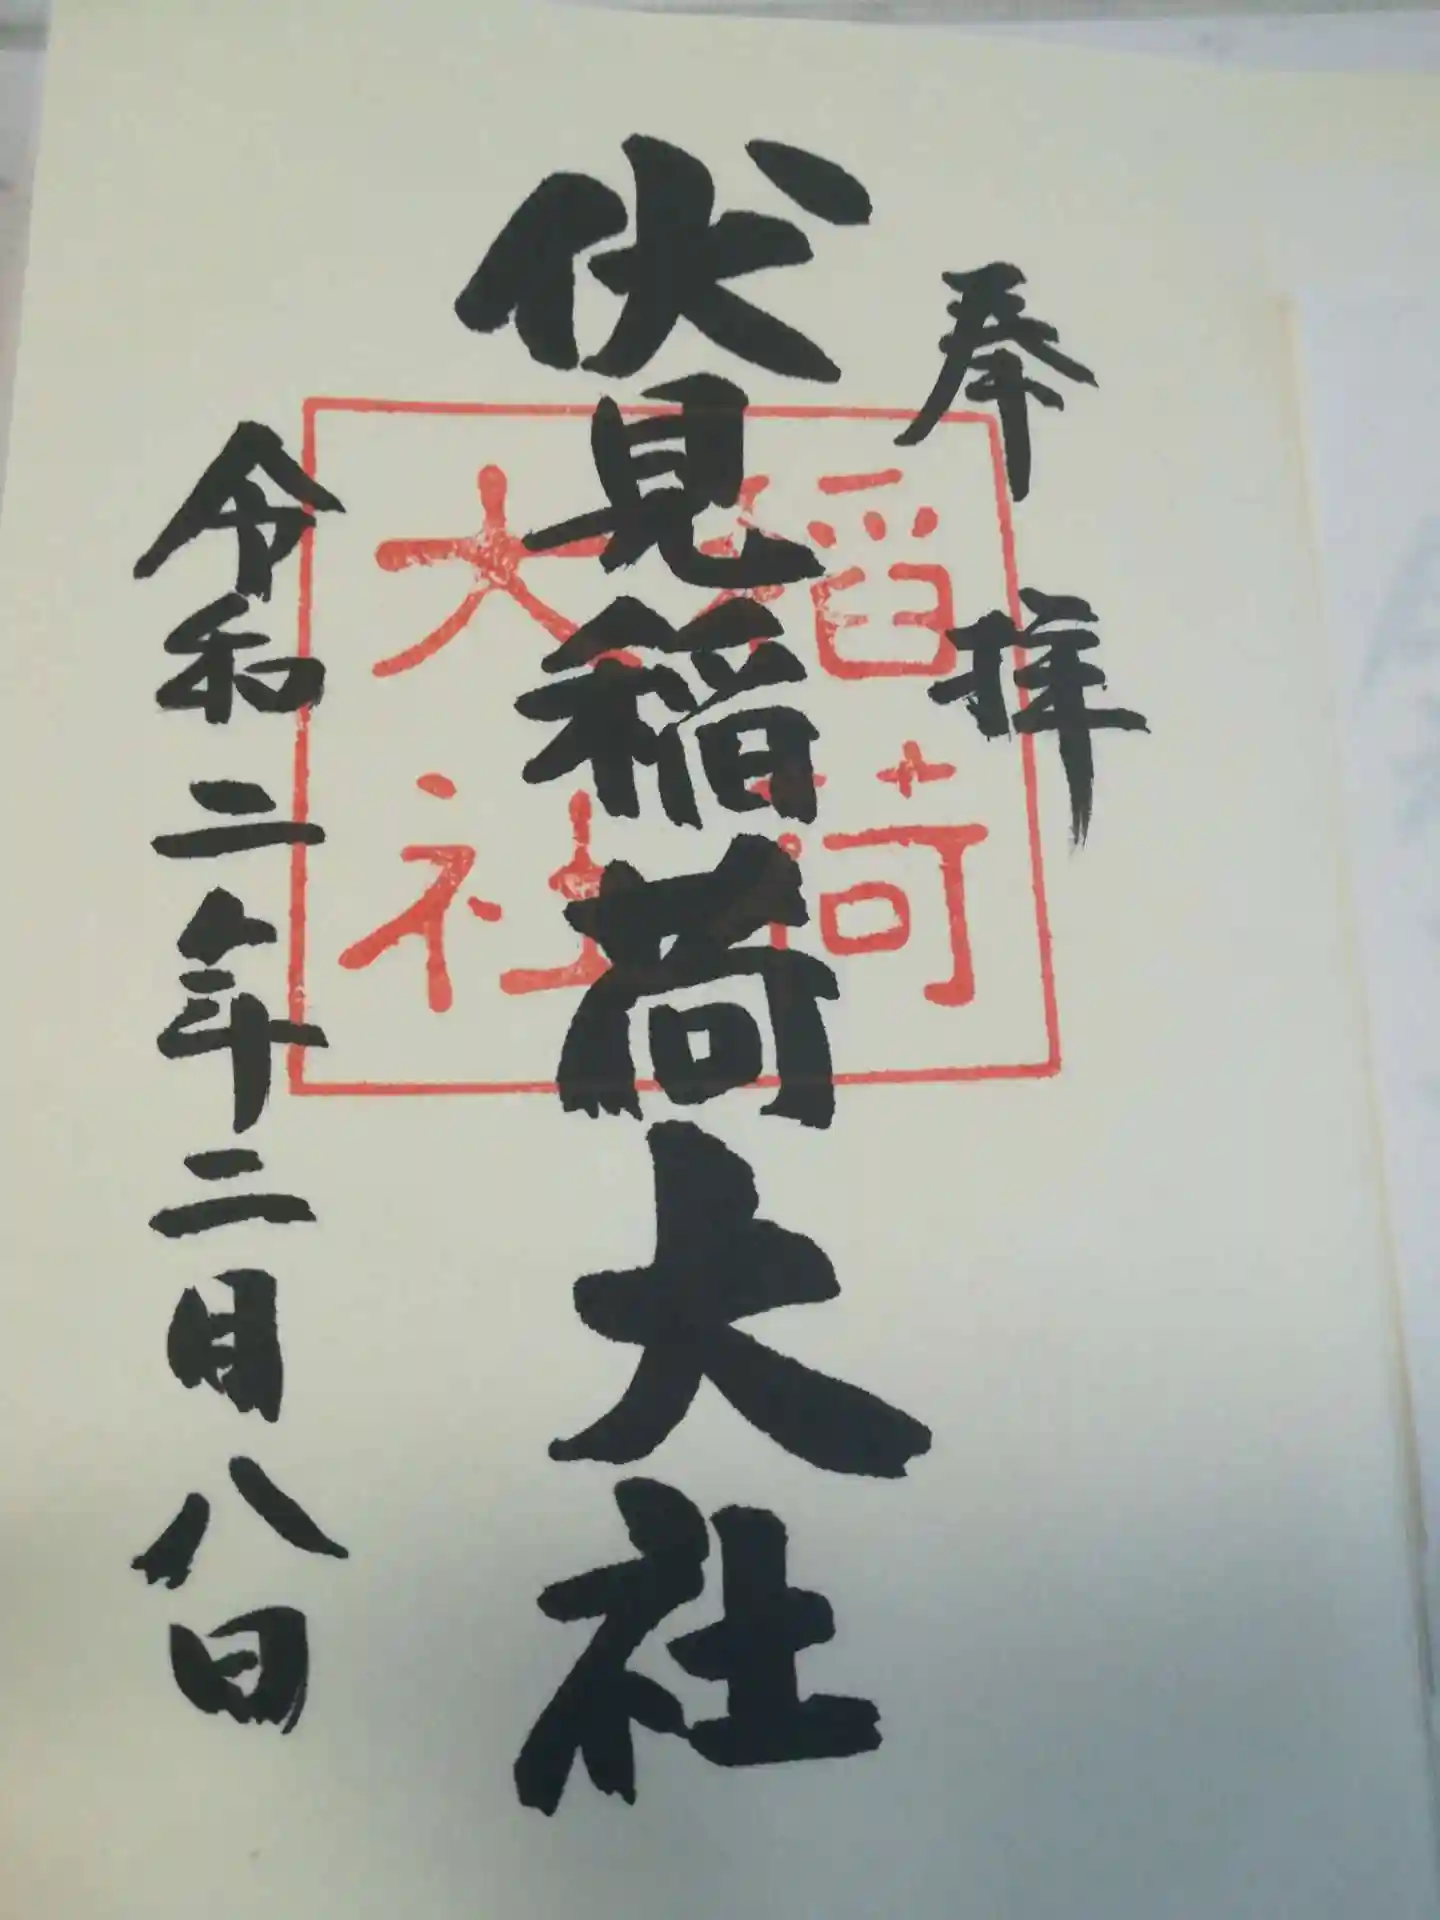 奉拝
伏見稲荷大社
稲荷
大社
令和二年二月八日